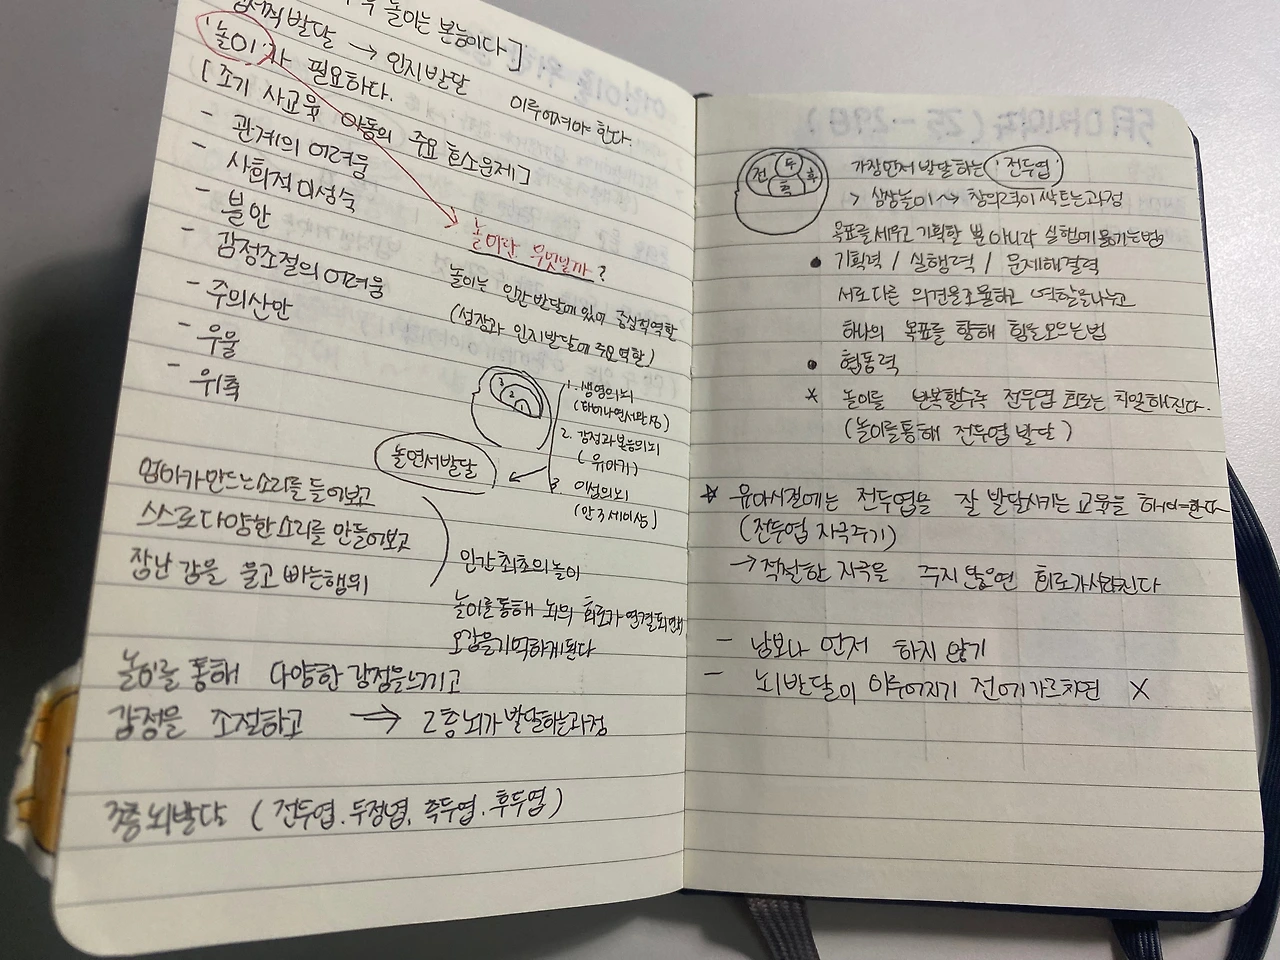 놀이는 본능이다 ]
정서적 발달 → 인지발달 이루어져야 한다.
'놀이'가 필요하다.
[ 조기 사교육 아동의 주요 호소문제 ]
- 관계의 어려움
- 사회적 미성숙
- 불안
- 감정조절의 어려움
- 주의산만
- 우울
- 위축
놀이란 무엇일까?
놀이는 인간발달에 있어 중심적역할
(성장과 인지발달에 주요역할)
3
2
1
1. 생명의뇌
(태어나면서완성)
2. 감정과본능의뇌
(유아기)
3. 이성의뇌
(만3세이상)
놀면서발달
엄마가만드는소리를 들어보고
스스로다양한소리를 만들어보고
장난감을 물고 빠는행위
인간최초의놀이
놀이를통해 뇌의 회로가 연결되면서
오감을기억하게된다
놀이를 통해 다양한감정을느끼고
감정을 조절하고 → 2층뇌가발달하는과정
3층뇌발달 ( 전두엽. 두정엽. 측두엽. 후두엽 )
전 두 측 후
가장먼저 발달하는 '전두엽'
> 상상놀이 → 창의력이싹트는과정
목표를세우고기획할 뿐 아니라 실행에옮기는법
● 기획력 / 실행력 / 문제해결력
서로다른 의견을조율하고 역할을나누고
하나의 목표를 향해 힘을모으는법
● 협동력
* 놀이를 반복할수록 전두엽 회로는 치밀해진다.
(놀이를통해 전두엽발달)
☆ 유아시절에는 전두엽을 잘 발달시키는 교육을 해야한다
(전두엽 자극주기)
→ 적절한 자극을 주지않으면 회로가사라진다
- 남보다 먼저 하지 않기
- 뇌발달이 이루어지기 전에가르치면 X